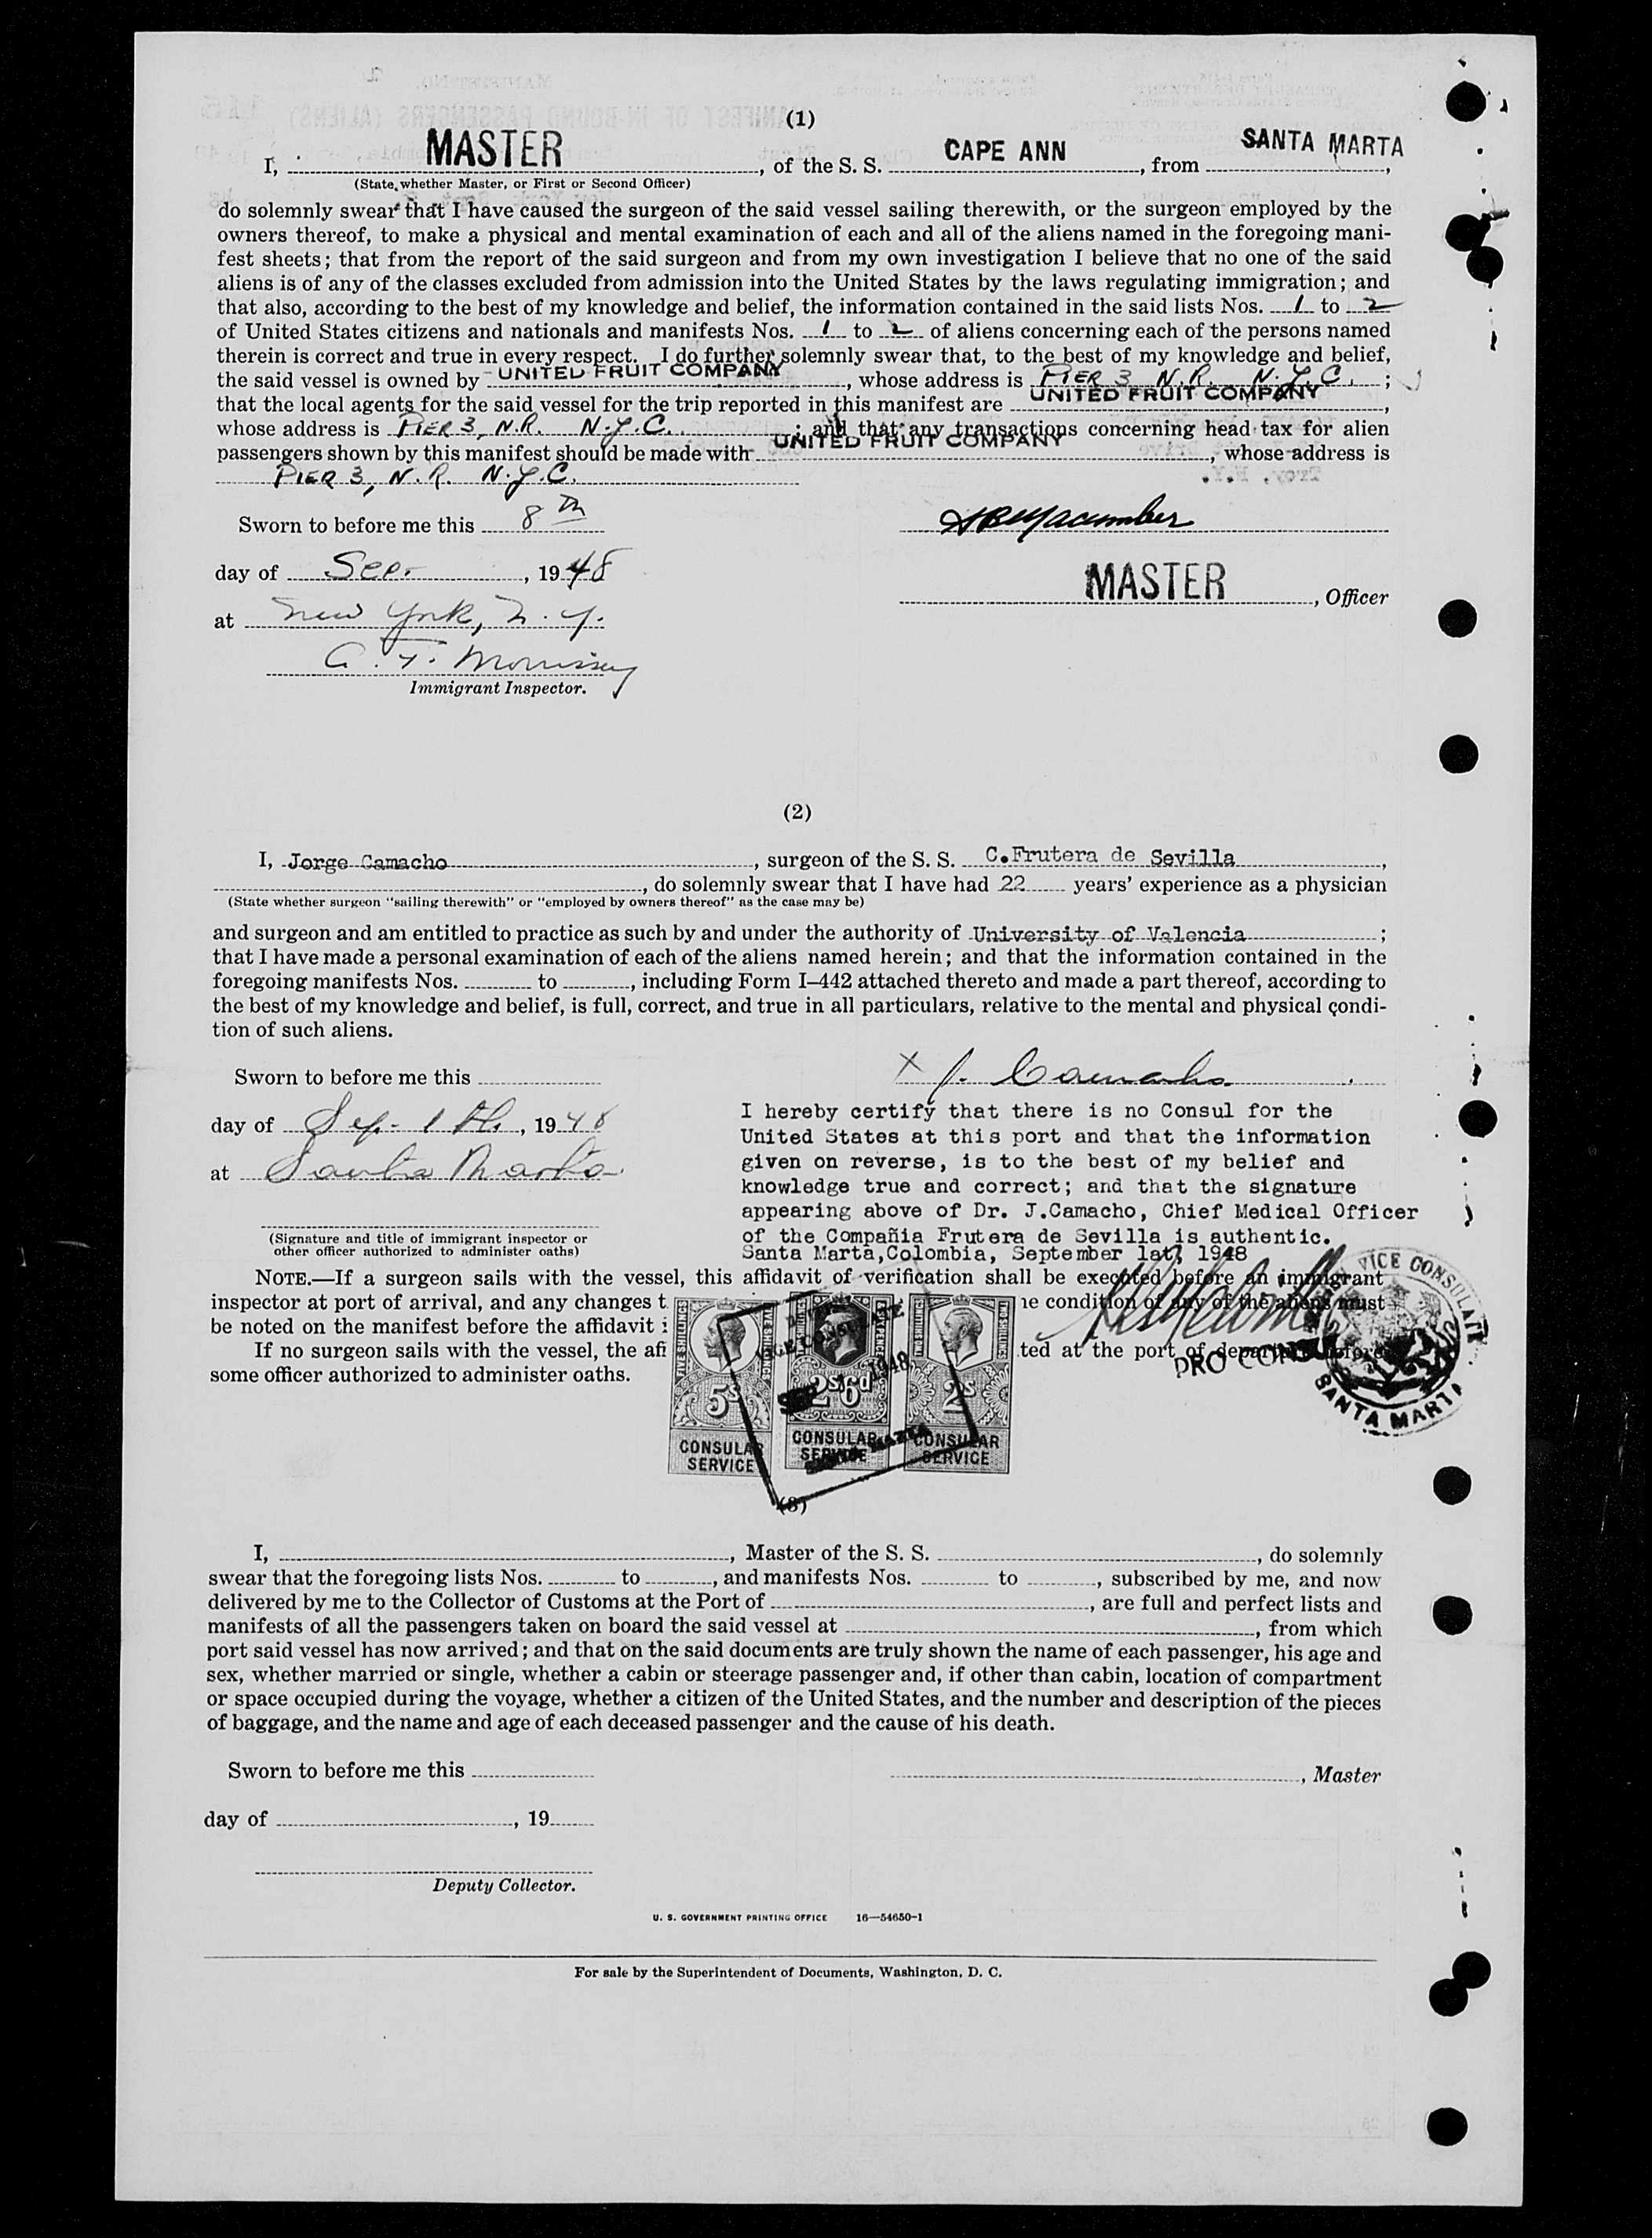 (1)
I, MASTER, of the S. S. CAPE ANN, from SANTA MARTA,
(State whether Master, or First or Second Officer)
do solemnly swear that I have caused the surgeon of the said vessel sailing therewith, or the surgeon employed by the
owners thereof, to make a physical and mental examination of each and all of the aliens named in the foregoing mani-
fest sheets; that from the report of the said surgeon and from my own investigation I believe that no one of the said
aliens is of any of the classes excluded from admission into the United States by the laws regulating immigration; and
that also, according to the best of my knowledge and belief, the information contained in the said lists Nos. 1 to 2
of United States citizens and nationals and manifests Nos. 1 to 2 of aliens concerning each of the persons named
therein is correct and true in every respect. I do further solemnly swear that, to the best of my knowledge and belief,
the said vessel is owned by UNITED FRUIT COMPANY, whose address is PIER 3 N.R. N.Y.C. ;
that the local agents for the said vessel for the trip reported in this manifest are UNITED FRUIT COMPANY,
whose address is PIER 3, N.R. N.Y.C. ; and that any transactions concerning head tax for alien
passengers shown by this manifest should be made with UNITED FRUIT COMPANY, whose address is
PIER 3, N.R. N.Y.C.
Sworn to before me this 8th
day of Sep., 1948
MASTER, Officer
at New York, N.Y.
Immigrant Inspector.
(2)
I, Jorge Camacho, surgeon of the S. S. C.Frutera de Sevilla,
, do solemnly swear that I have had 22 years' experience as a physician
(State whether surgeon "sailing therewith" or "employed by owners thereof" as the case may be)
and surgeon and am entitled to practice as such by and under the authority of University of Valencia ;
that I have made a personal examination of each of the aliens named herein; and that the information contained in the
foregoing manifests Nos. to , including Form I-442 attached thereto and made a part thereof, according to
the best of my knowledge and belief, is full, correct, and true in all particulars, relative to the mental and physical condi-
tion of such aliens.
Sworn to before me this
X J. Camacho
day of Sep. 1st, 1948
at Santa Marta
(Signature and title of immigrant inspector or
other officer authorized to administer oaths)
I hereby certify that there is no Consul for the
United States at this port and that the information
given on reverse, is to the best of my belief and
knowledge true and correct; and that the signature
appearing above of Dr. J.Camacho, Chief Medical Officer
of the Compañia Frutera de Sevilla is authentic.
Santa Marta,Colombia, September 1st, 1948
NOTE.—If a surgeon sails with the vessel, this affidavit of verification shall be executed before an immigrant
inspector at port of arrival, and any changes t he condition of any of the aliens must
be noted on the manifest before the affidavit i
If no surgeon sails with the vessel, the afi ted at the port of departure before
some officer authorized to administer oaths.
PRO CONSUL
VICE CONSULATE
SANTA MARTA
FIVE SHILLINGS
5s
CONSULAR
SERVICE
2s6d
CONSULAR
SERVICE
TWO SHILLINGS
2s
CONSULAR
SERVICE
VICE CONSULATE
SEP 1948
SANTA MARTA
(3)
I, , Master of the S. S. , do solemnly
swear that the foregoing lists Nos. to , and manifests Nos. to , subscribed by me, and now
delivered by me to the Collector of Customs at the Port of , are full and perfect lists and
manifests of all the passengers taken on board the said vessel at , from which
port said vessel has now arrived; and that on the said documents are truly shown the name of each passenger, his age and
sex, whether married or single, whether a cabin or steerage passenger and, if other than cabin, location of compartment
or space occupied during the voyage, whether a citizen of the United States, and the number and description of the pieces
of baggage, and the name and age of each deceased passenger and the cause of his death.
Sworn to before me this
, Master
day of , 19
Deputy Collector.
U. S. GOVERNMENT PRINTING OFFICE 16—54650-1
For sale by the Superintendent of Documents, Washington, D. C.